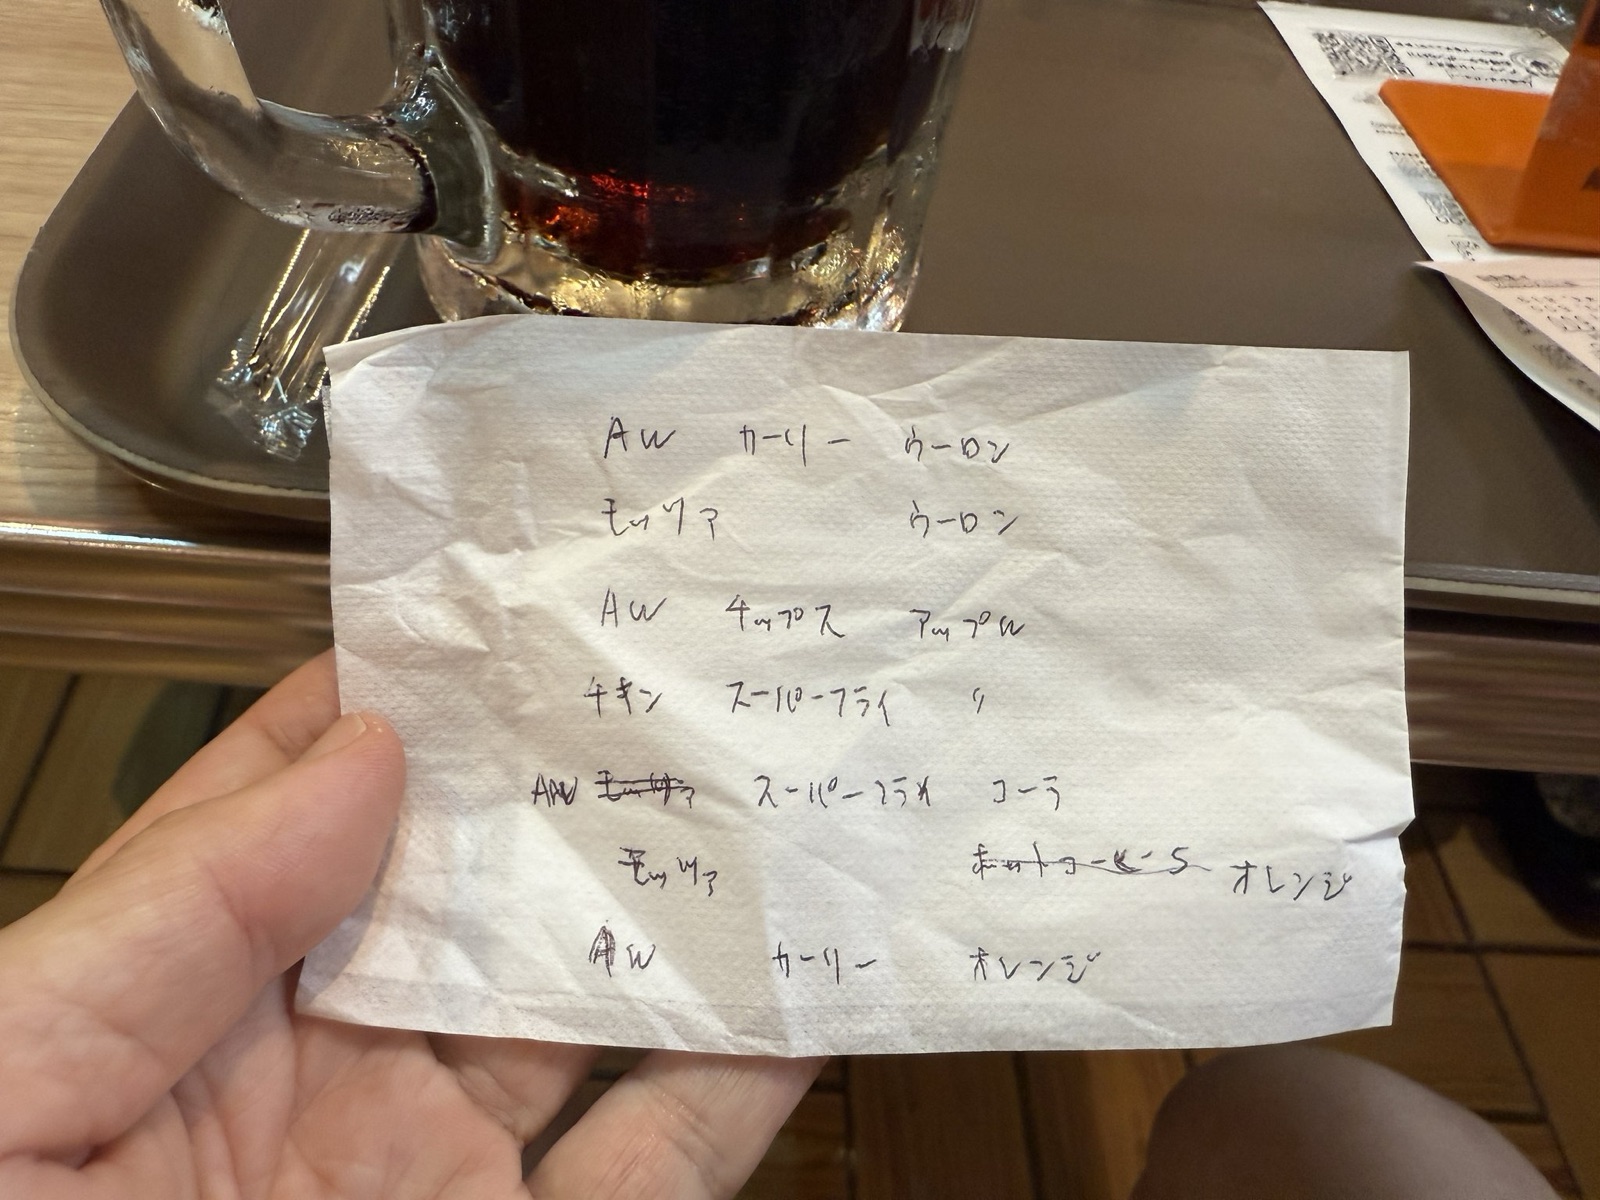 AW カーリー ウーロン
モッツァ ウーロン
AW チップス アップル
チキン スーパーフライ 〃
AW モッツァ スーパーフライ コーラ
モッツァ ホットコーヒーS オレンジ
AW カーリー オレンジ